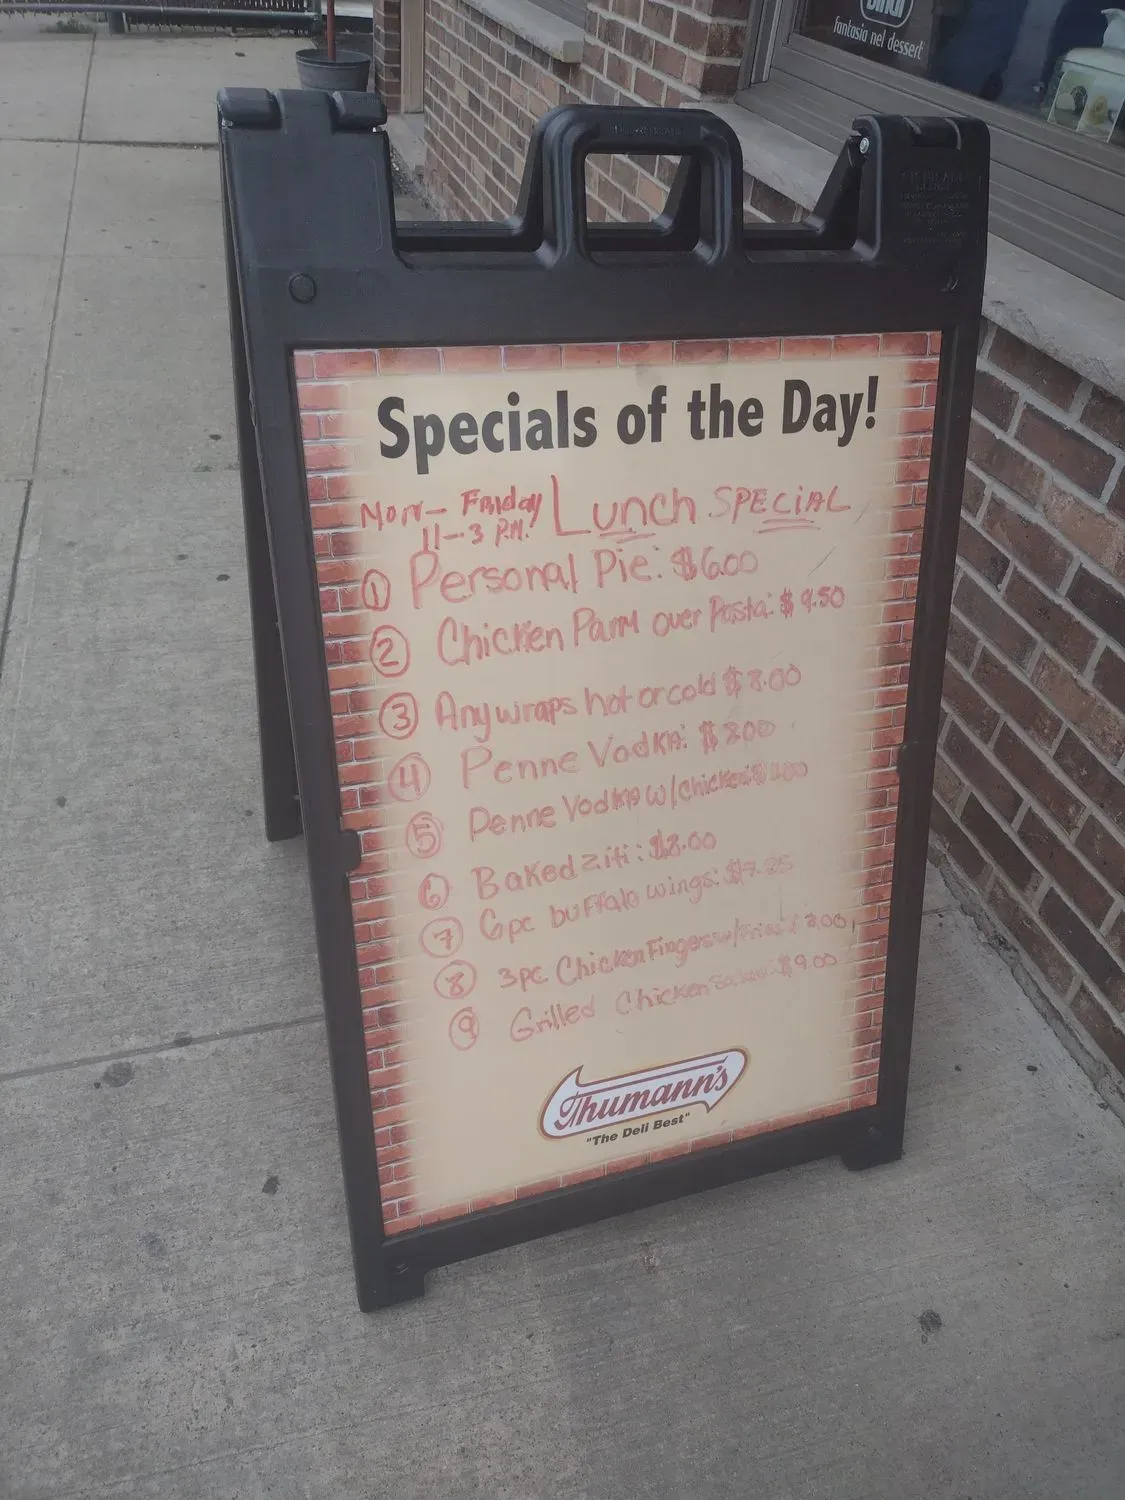 Bindi
fantasia nel dessert
Specials of the Day!
Mon- Friday Lunch SPECiAL
11-3 P.M.
1 Personal Pie: $6.00
2 Chicken Parm over Pasta: $9.50
3 Any wraps hot or cold $8.00
4 Penne Vodka: $8.00
5 Penne Vodka w/chicken
6 Baked ziti: $8.00
7 6pc buffalo wings: $7.25
8 3pc Chicken Fingers w/Fries
9 Grilled Chicken $9.00
Thumann's
"The Deli Best"